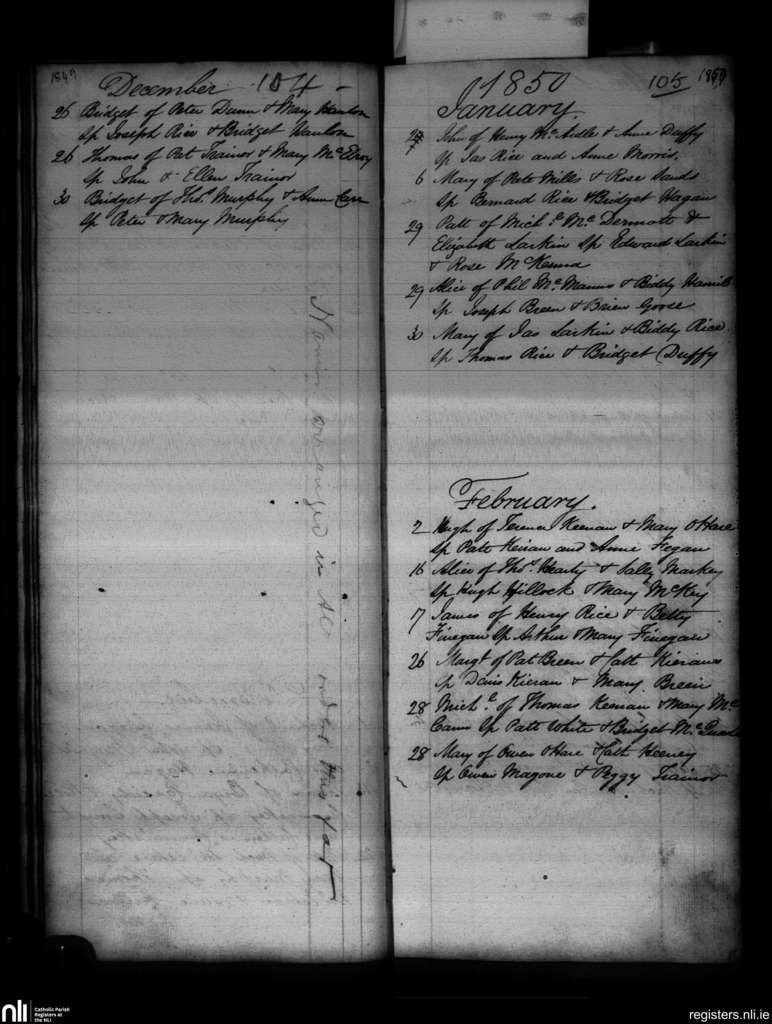 1849
December 104 -
26 Bridget of Peter Dunn & Mary Hanlon
Sp Joseph Rice & Bridget Hanlon
26 Thomas of Pat Trainor & Mary McElroy
Sp John & Ellen Trainor
30 Bridget of Thos. Murphy & Anne Carr
Sp Peter & Mary Murphy
Names arranged in AC order thus far
1850 105 1850
January
John of Henry McArdle & Anne Duffy
Sp Jas Rice and Anne Morris.
6 Mary of Pete Mills & Rose Sands
Sp Bernard Rice & Bridget Hagan
29 Patt of Michl. McDermott &
Elizabeth Larkin Sp Edward Larkin
& Rose McKenna
29 Alice of Phil McManus & Biddy Hamill
Sp Joseph Breen & Brien Goose
30 Mary of Jas Larkin & Biddy Rice.
Sp Thomas Rice & Bridget Duffy
February.
2 Hugh of Terence Keenan & Mary O Hare
Sp Patt Keiran and Anne Fegan
16 Alice of Thos. Hearty & Salley Markey
Sp Hugh Hillock & Mary McKey
17 James of Henry Rice & Betty
Finegan Sp Arthur & Mary Finegan
26 Margt of Pat Breen & Cath Kierans
Sp Denis Kieran & Mary Breen
28 Michl. of Thomas Keenan & Mary Mc
Cann Sp Patt White & Bridget McQuade
28 Mary of Owen O Hare & Cath Keeney
Sp Owen Magone & Peggy Trainor
nli Catholic Parish
Registers at
the NLI
registers.nli.ie